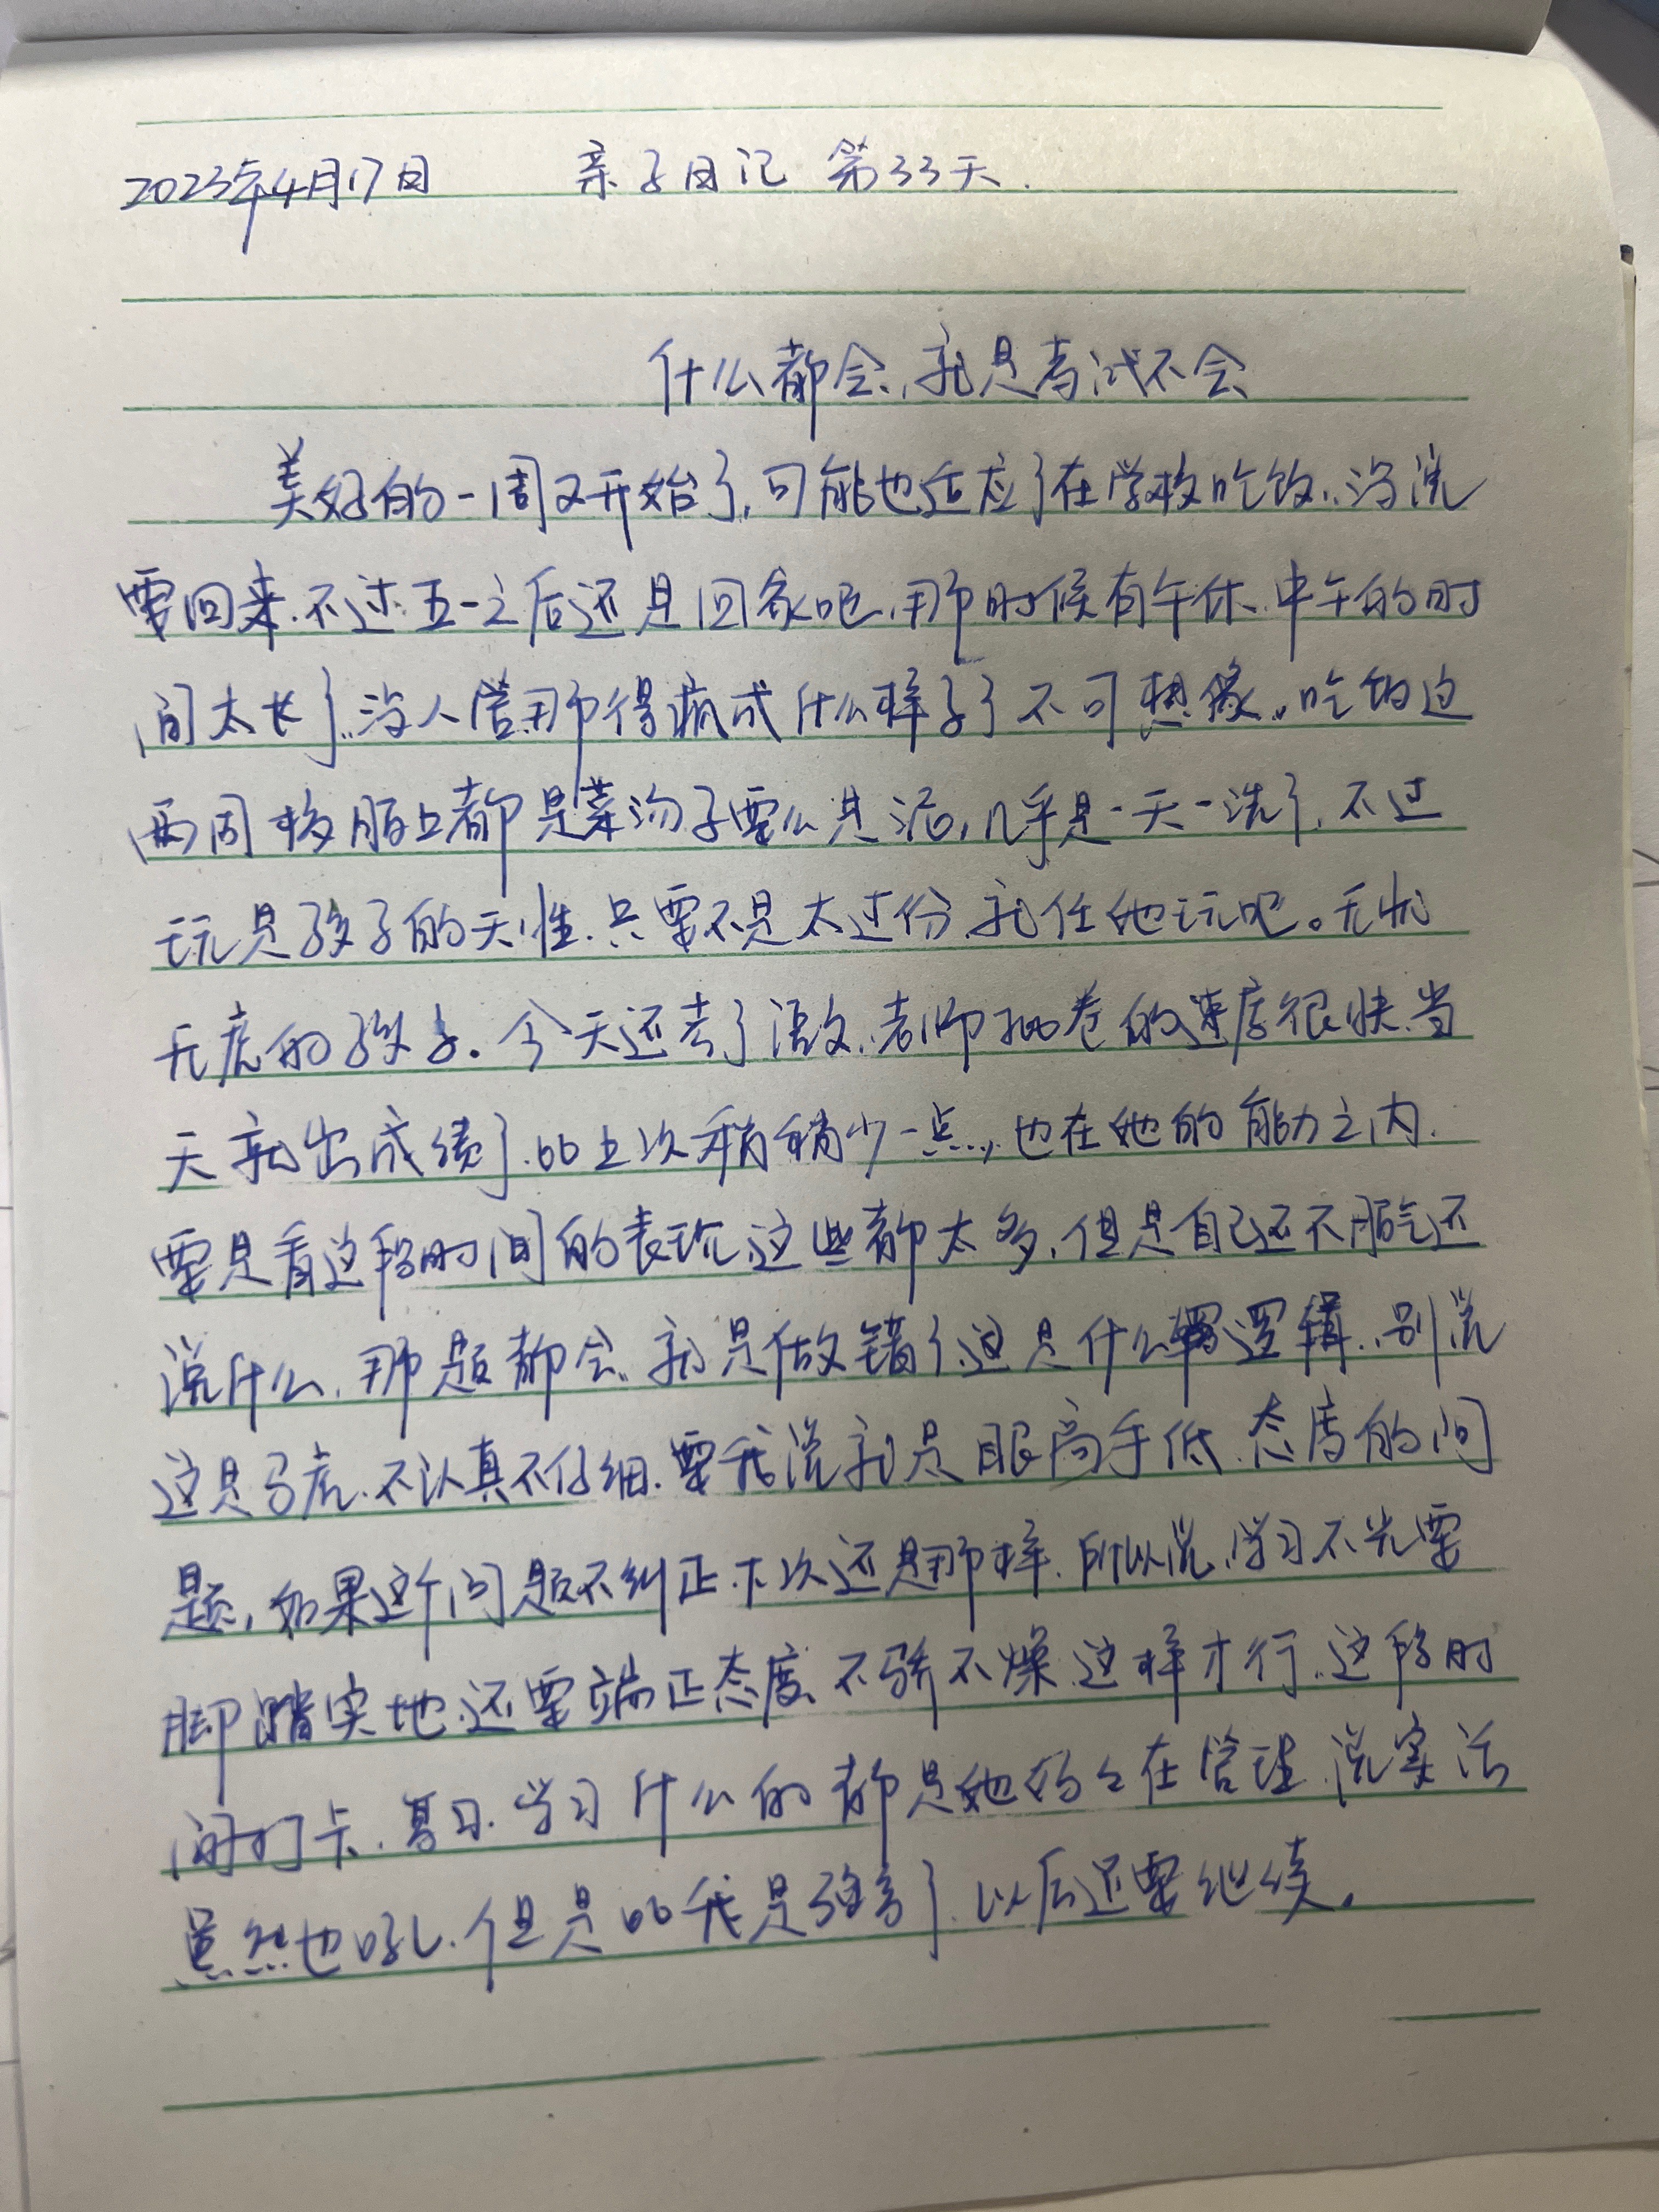 2023年4月17日 亲子日记 第33天.
什么都会,就是考试不会
美好的一周又开始了,可能也适应了在学校吃饭,没说
要回来.不过.五一之后还是回家吧,那时候有午休.中午的时
间太长了.没人管那得疯成什么样子了不可想像.吃饭这
两周校服上都是菜汤子要么是泥,几乎是一天一洗了,不过
玩是孩子的天性.只要不是太过份.就任她玩吧。无忧
无虑的孩子.今天还考了语文.老师批卷的速度很快.当
天就出成绩了.比上次稍稍少一点.,也在她的能力之内.
要是看这段时间的表现,这些都太多,但是自己还不服气还
说什么,那题都会.就是做错了,这是什么逻辑.别说
这是马虎.不认真不仔细.要我说就是眼高手低.态度的问
题,如果这个问题不纠正.下次还是那样.所以说,学习不光要
脚踏实地.还要端正态度、不骄不燥.这样才行.这段时
间打卡.复习.学习什么的都是她妈妈在管理.说实话
虽然也吼.但是比我是强多了.以后还要继续.